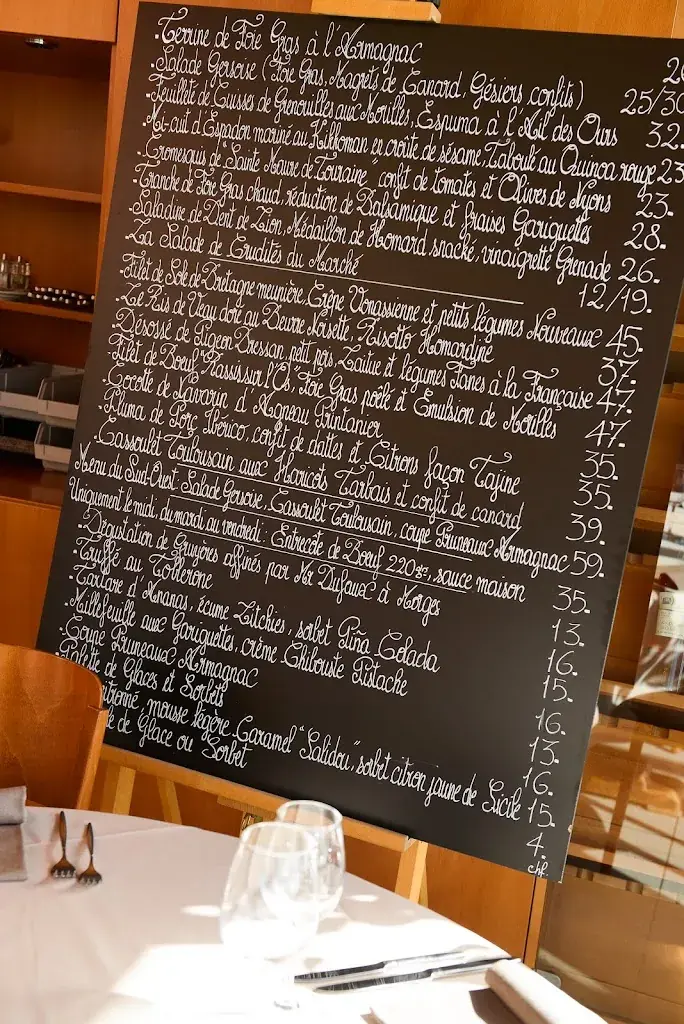 .Terrine de Foie Gras à l'Armagnac
.Salade Gersoise (Foie Gras, Magrets de Canard, Gésiers confits) 25/30
.Feuilleté de Cuisses de Grenouilles aux Morilles, Espuma à l'Ail des Ours 32.
.Mi-cuit d'Espadon mariné au Kikkoman en croûte de sésame, Taboulé au Quinoa rouge 23
.Cromesquis de "Sainte Maure de Touraine" confit de tomates et Olives de Nyons 23.
.Tranche de Foie Gras chaud, réduction de Balsamique et fraises Gariguettes 28.
.Saladine de Dent de Lion, Médaillon de Homard snacké, vinaigrette Grenade 26.
.La Salade de Crudités du Marché 12/19.
.Filet de Sole de Bretagne meunière, Crêpe Vonassienne et petits légumes Nouveaux 45.
.Le Ris de Veau doré au Beurre Noisette, Risotto Homardine 37.
.Désossé de Pigeon Bressan, petit pois, Laitue et légumes Fanes à la Française 47.
.Filet de Boeuf "Rassis sur l'Os", Foie Gras poêlé et Emulsion de Morilles 47.
.Cocotte de Navarin d'Agneau Printanier 35.
.Pluma de Porc Ibérico, confit de dattes et Citrons façon Tajine 35.
.Cassoulet Toulousain aux Haricots Tarbais et confit de canard 39.
Menu du Sud-Ouest: Salade Gersoise, Cassoulet Toulousain, coupe Pruneaux Armagnac 59.
Uniquement le midi, du mardi au vendredi: Entrecôte de Boeuf 220gr, sauce maison 35.
.Dégustation de Gruyères affinés par Mr Dufaux à Morges 13.
.Truffé au Toblerone 16.
.Tartare d'Ananas, écume Litchies, sorbet Piña Colada 15.
.Millefeuille aux Gariguettes, crème Chibouste Pistache 16.
.Coupe Pruneaux Armagnac 13.
.Palette de Glaces et Sorbets 16.
mousse légère Caramel "Salidou", sorbet citron jaune de Sicile 15.
de Glace ou Sorbet 4.
chf.